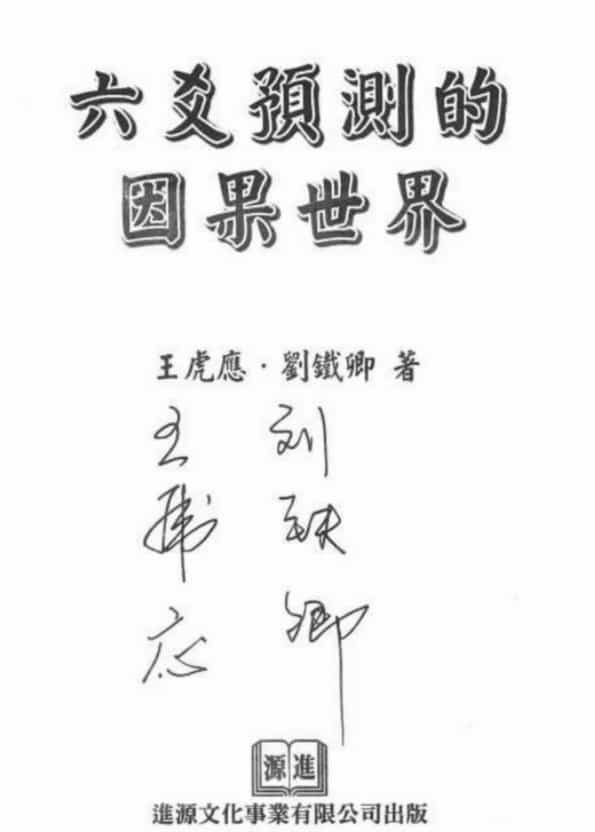 六爻預測的
因果世界
王虎應·劉鐵卿 著
王虎应
刘铁卿
源進
進源文化事業有限公司出版